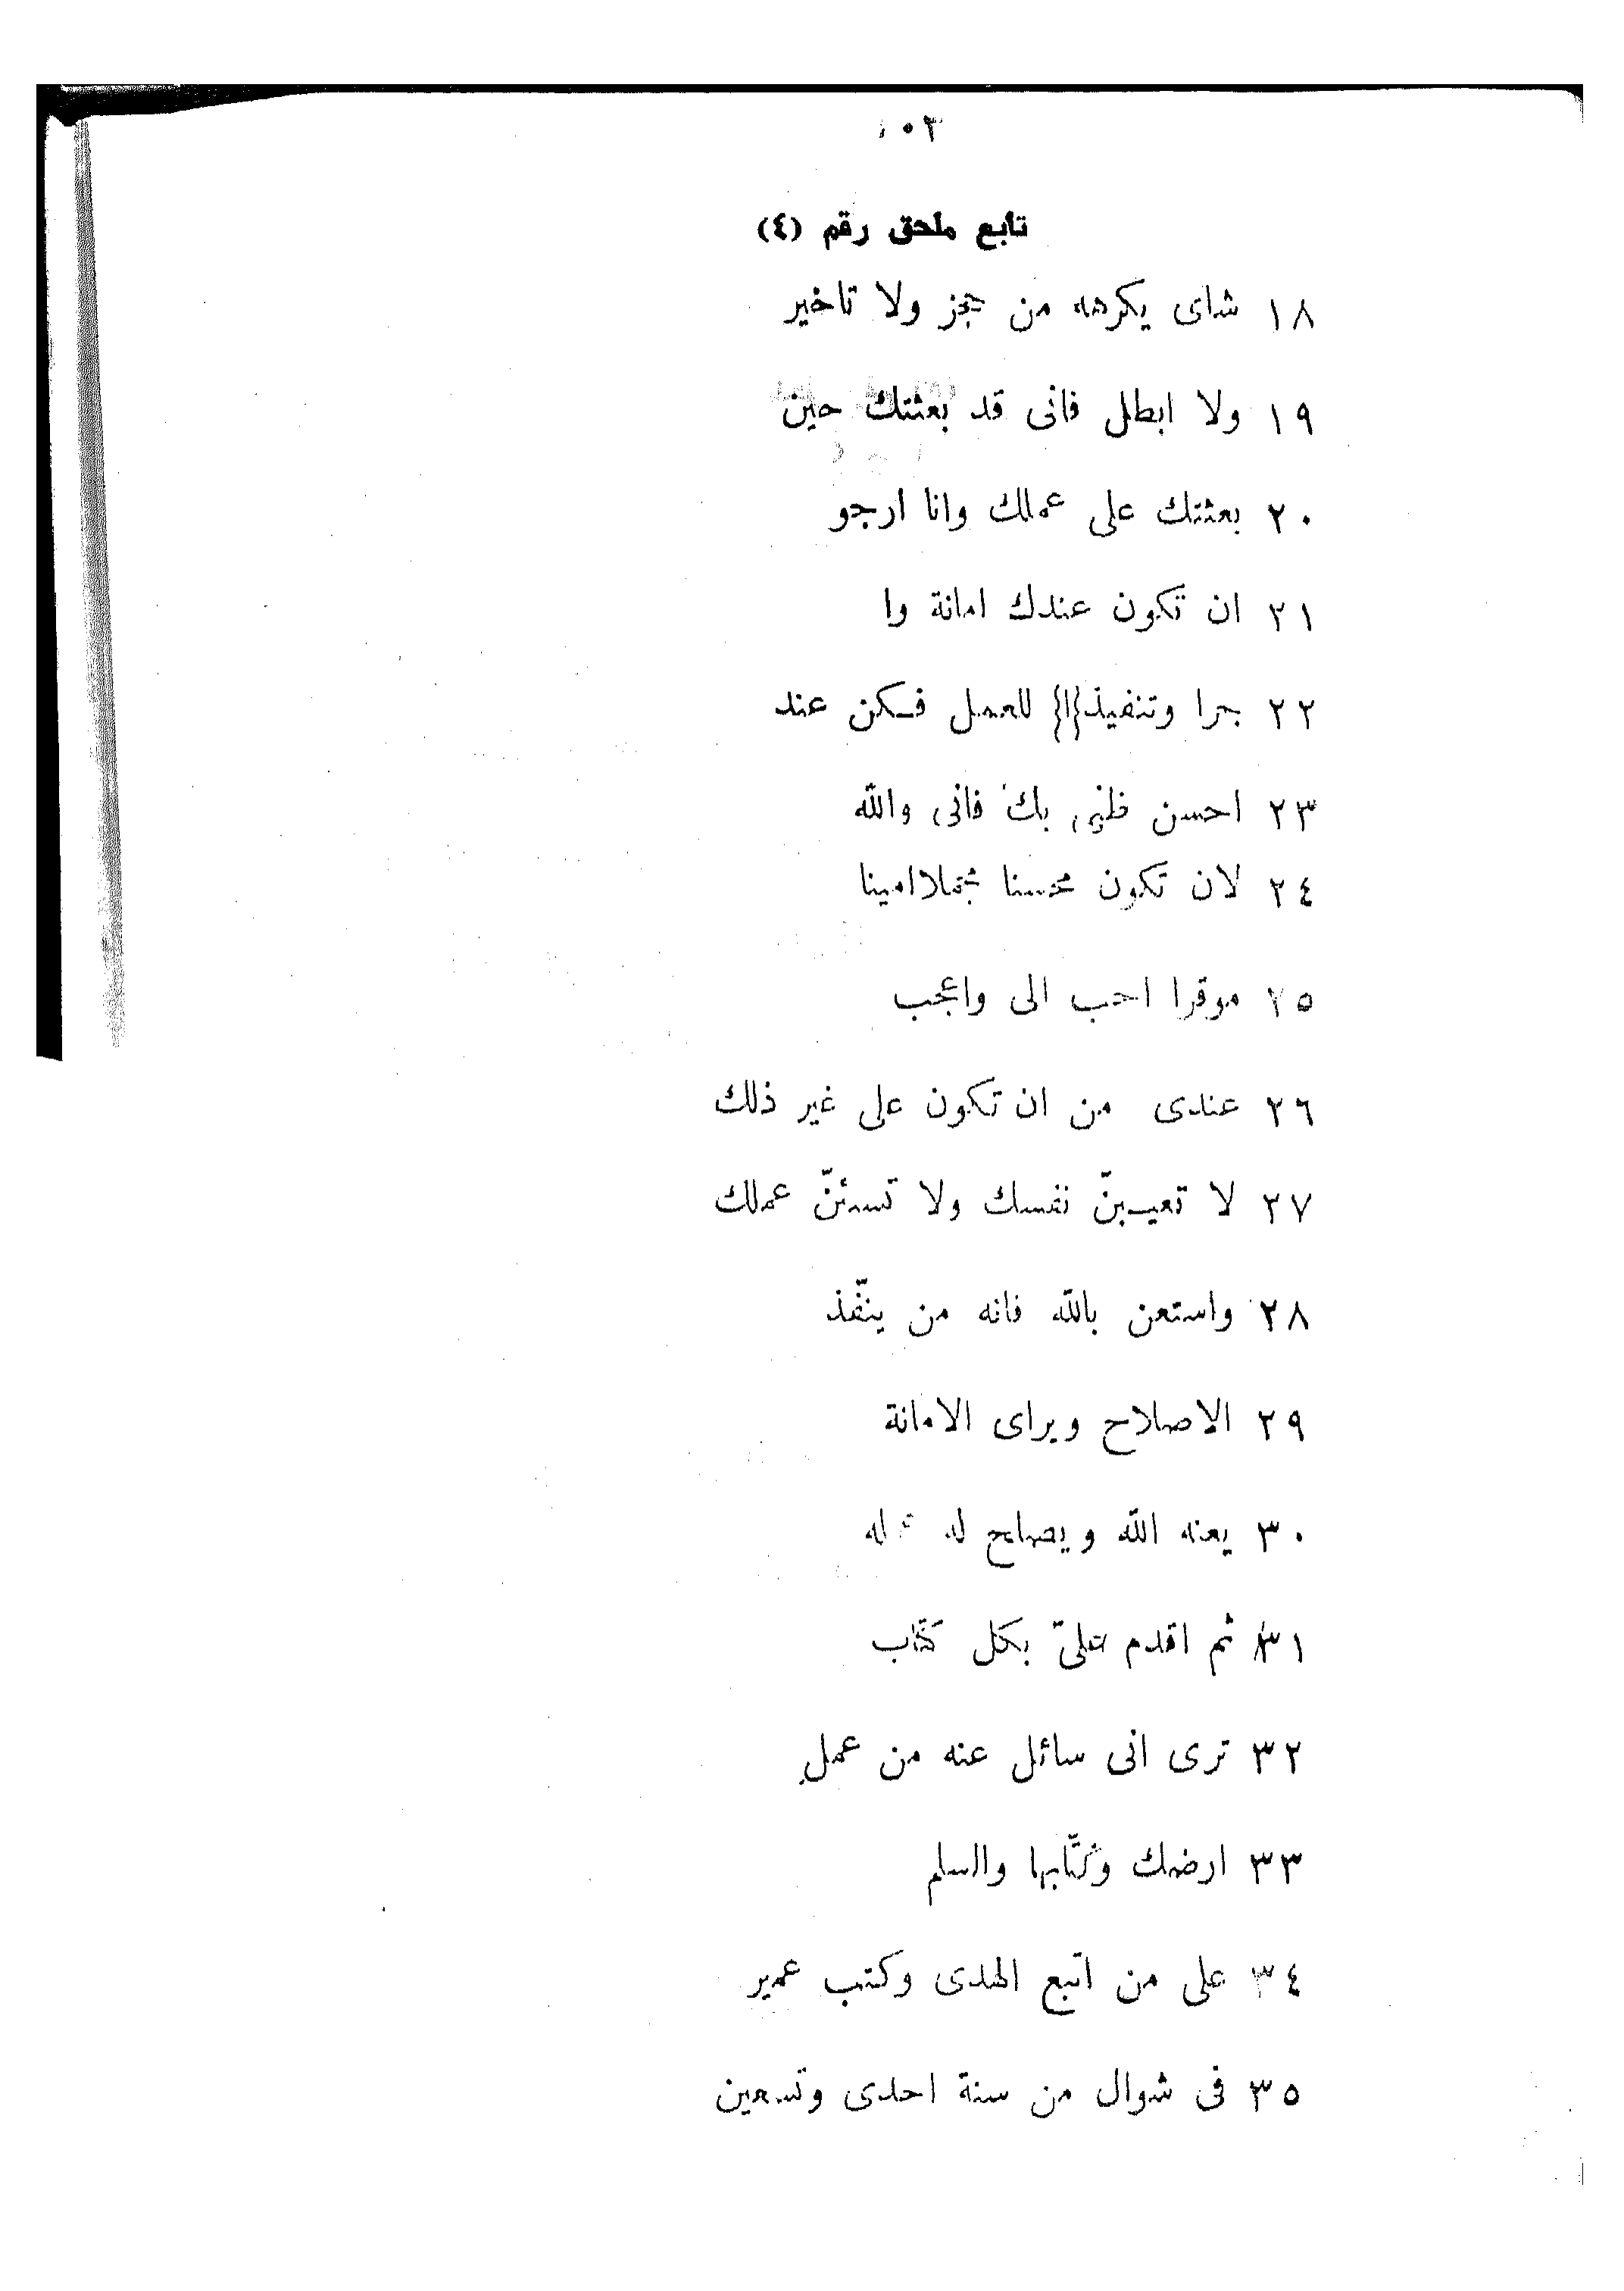 ١٠٣
تابع ملحق رقم (٤)
١٨ شاى يكرهه من عجز ولا تاخير
١٩ ولا ابطل فانى قد بعثتك حين
٢٠ بعثتك على عملك وانا ارجو
٢١ ان تكون عندك امانة وا
٢٢ جرا وتنفيذ{ا} للعمل فكن عند
٢٣ احسن ظنى بك فانى والله
٢٤ لان تكون محسنا مجملا امينا
٢٥ موقرا احب الى واعجب
٢٦ عندى من ان تكون على غير ذلك
٢٧ لا تعيبنّ نفسك ولا تسئنّ عملك
٢٨ واستعن بالله فانه من ينفّذ
٢٩ الاصلاح ويراى الامانة
٣٠ يعنه الله ويصلح له
٣١ ثم اقدم علىّ بكل كتاب
٣٢ ترى انى سائل عنه من عمل
٣٣ ارضك وكتّابها والسلم
٣٤ على من اتبع الهدى وكتب عمير
٣٥ فى شوال من سنة احدى وتسعين